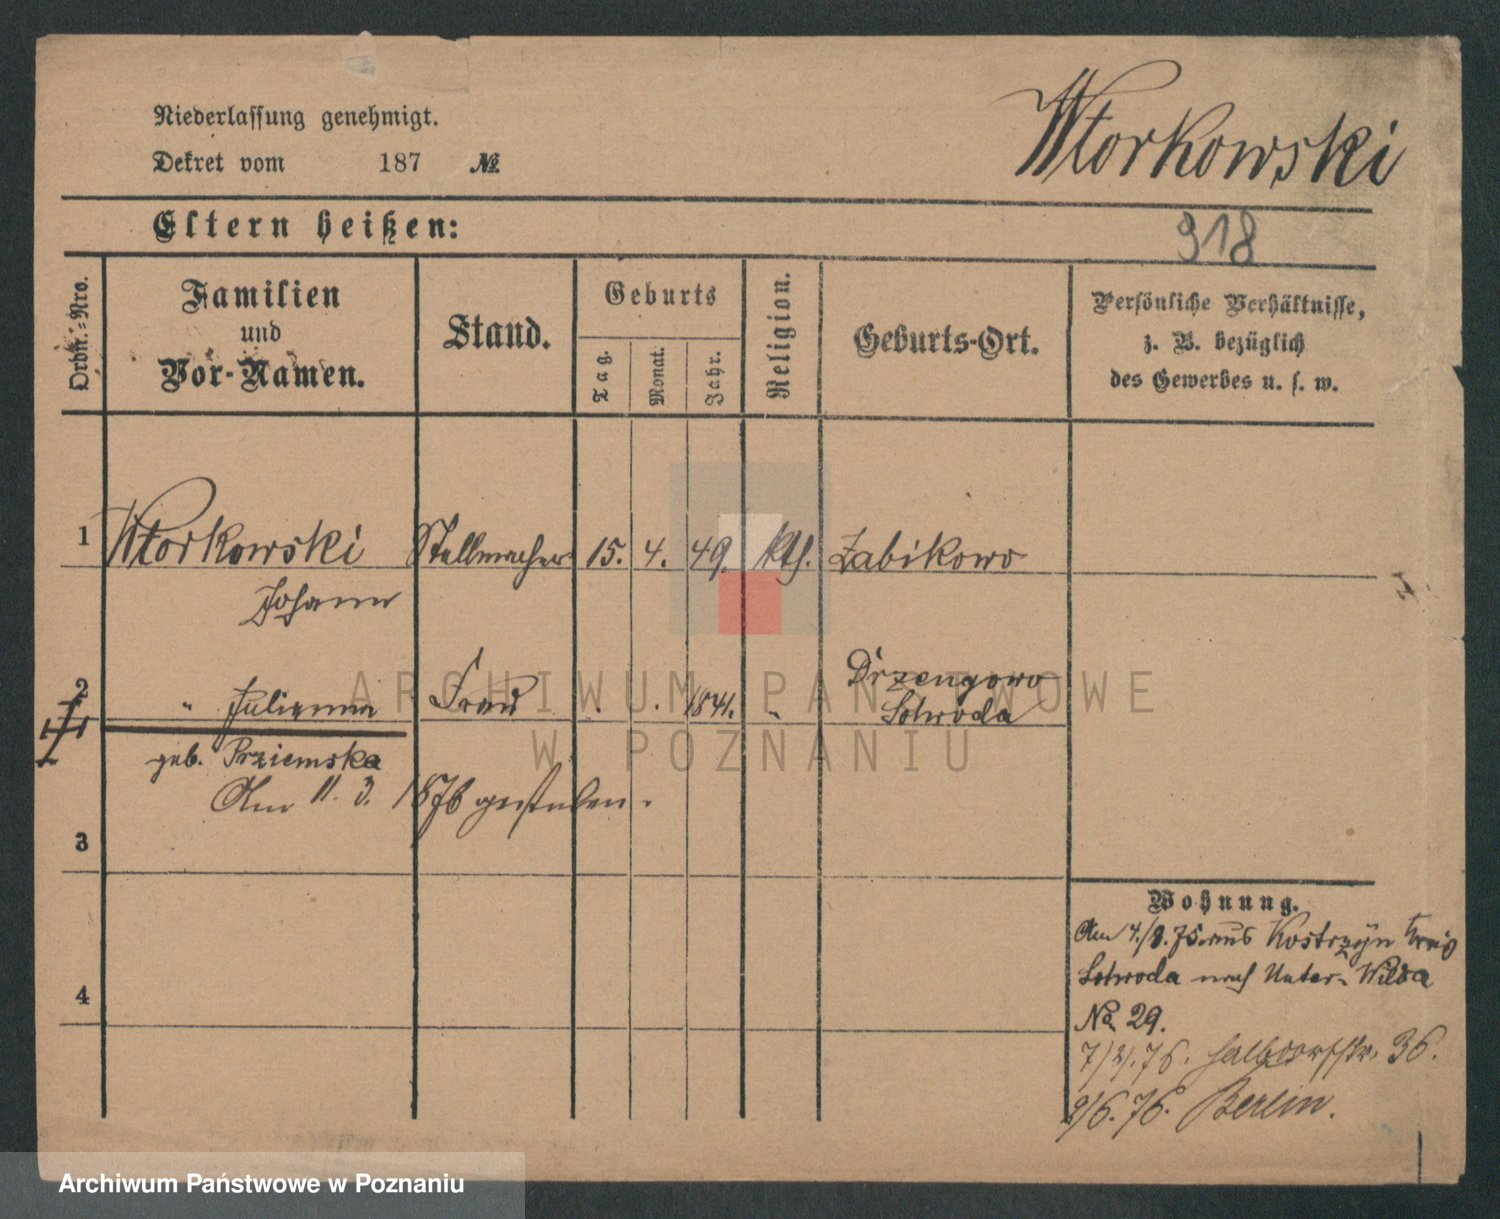 Niederlassung genehmigt.
Dekret vom 187 №
Wtorkowski
Eltern heißen:
918
Ordn.-Nro.
Familien
und
Vor-Namen.
Stand.
Geburts
Tag.
Monat.
Jahr.
Religion.
Geburts-Ort.
Persönliche Verhältnisse,
z. B. bezüglich
des Gewerbes u. s. w.
1 Wtorkowski Stellmacher 15. 4. 49. kth. Zabikowo
Johann
2 " Julianna Frau . . 1841. " Drzengowo
Schroda
geb. Prziemska
Am 11. 3. 1876 gestorben.
3
4
Wohnung.
Am 4./8. 75. aus Kostrzyn Kreis
Schroda nach Unter-Wilda
No 29.
7/2. 76. Halbdorfstr. 36.
2/6. 76. Berlin.
ARCHIWUM PAŃSTWOWE
W POZNANIU
Archiwum Państwowe w Poznaniu